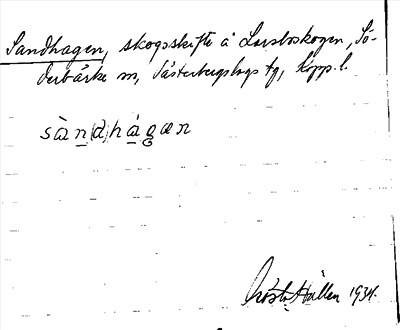 Sandhagen, skogsskifte å Larsboskogen, Sö-
derbärke sn, Västerbergslags tg, Kopp. l.
sàn(d)hágæn
Gösta Hallen 1934.